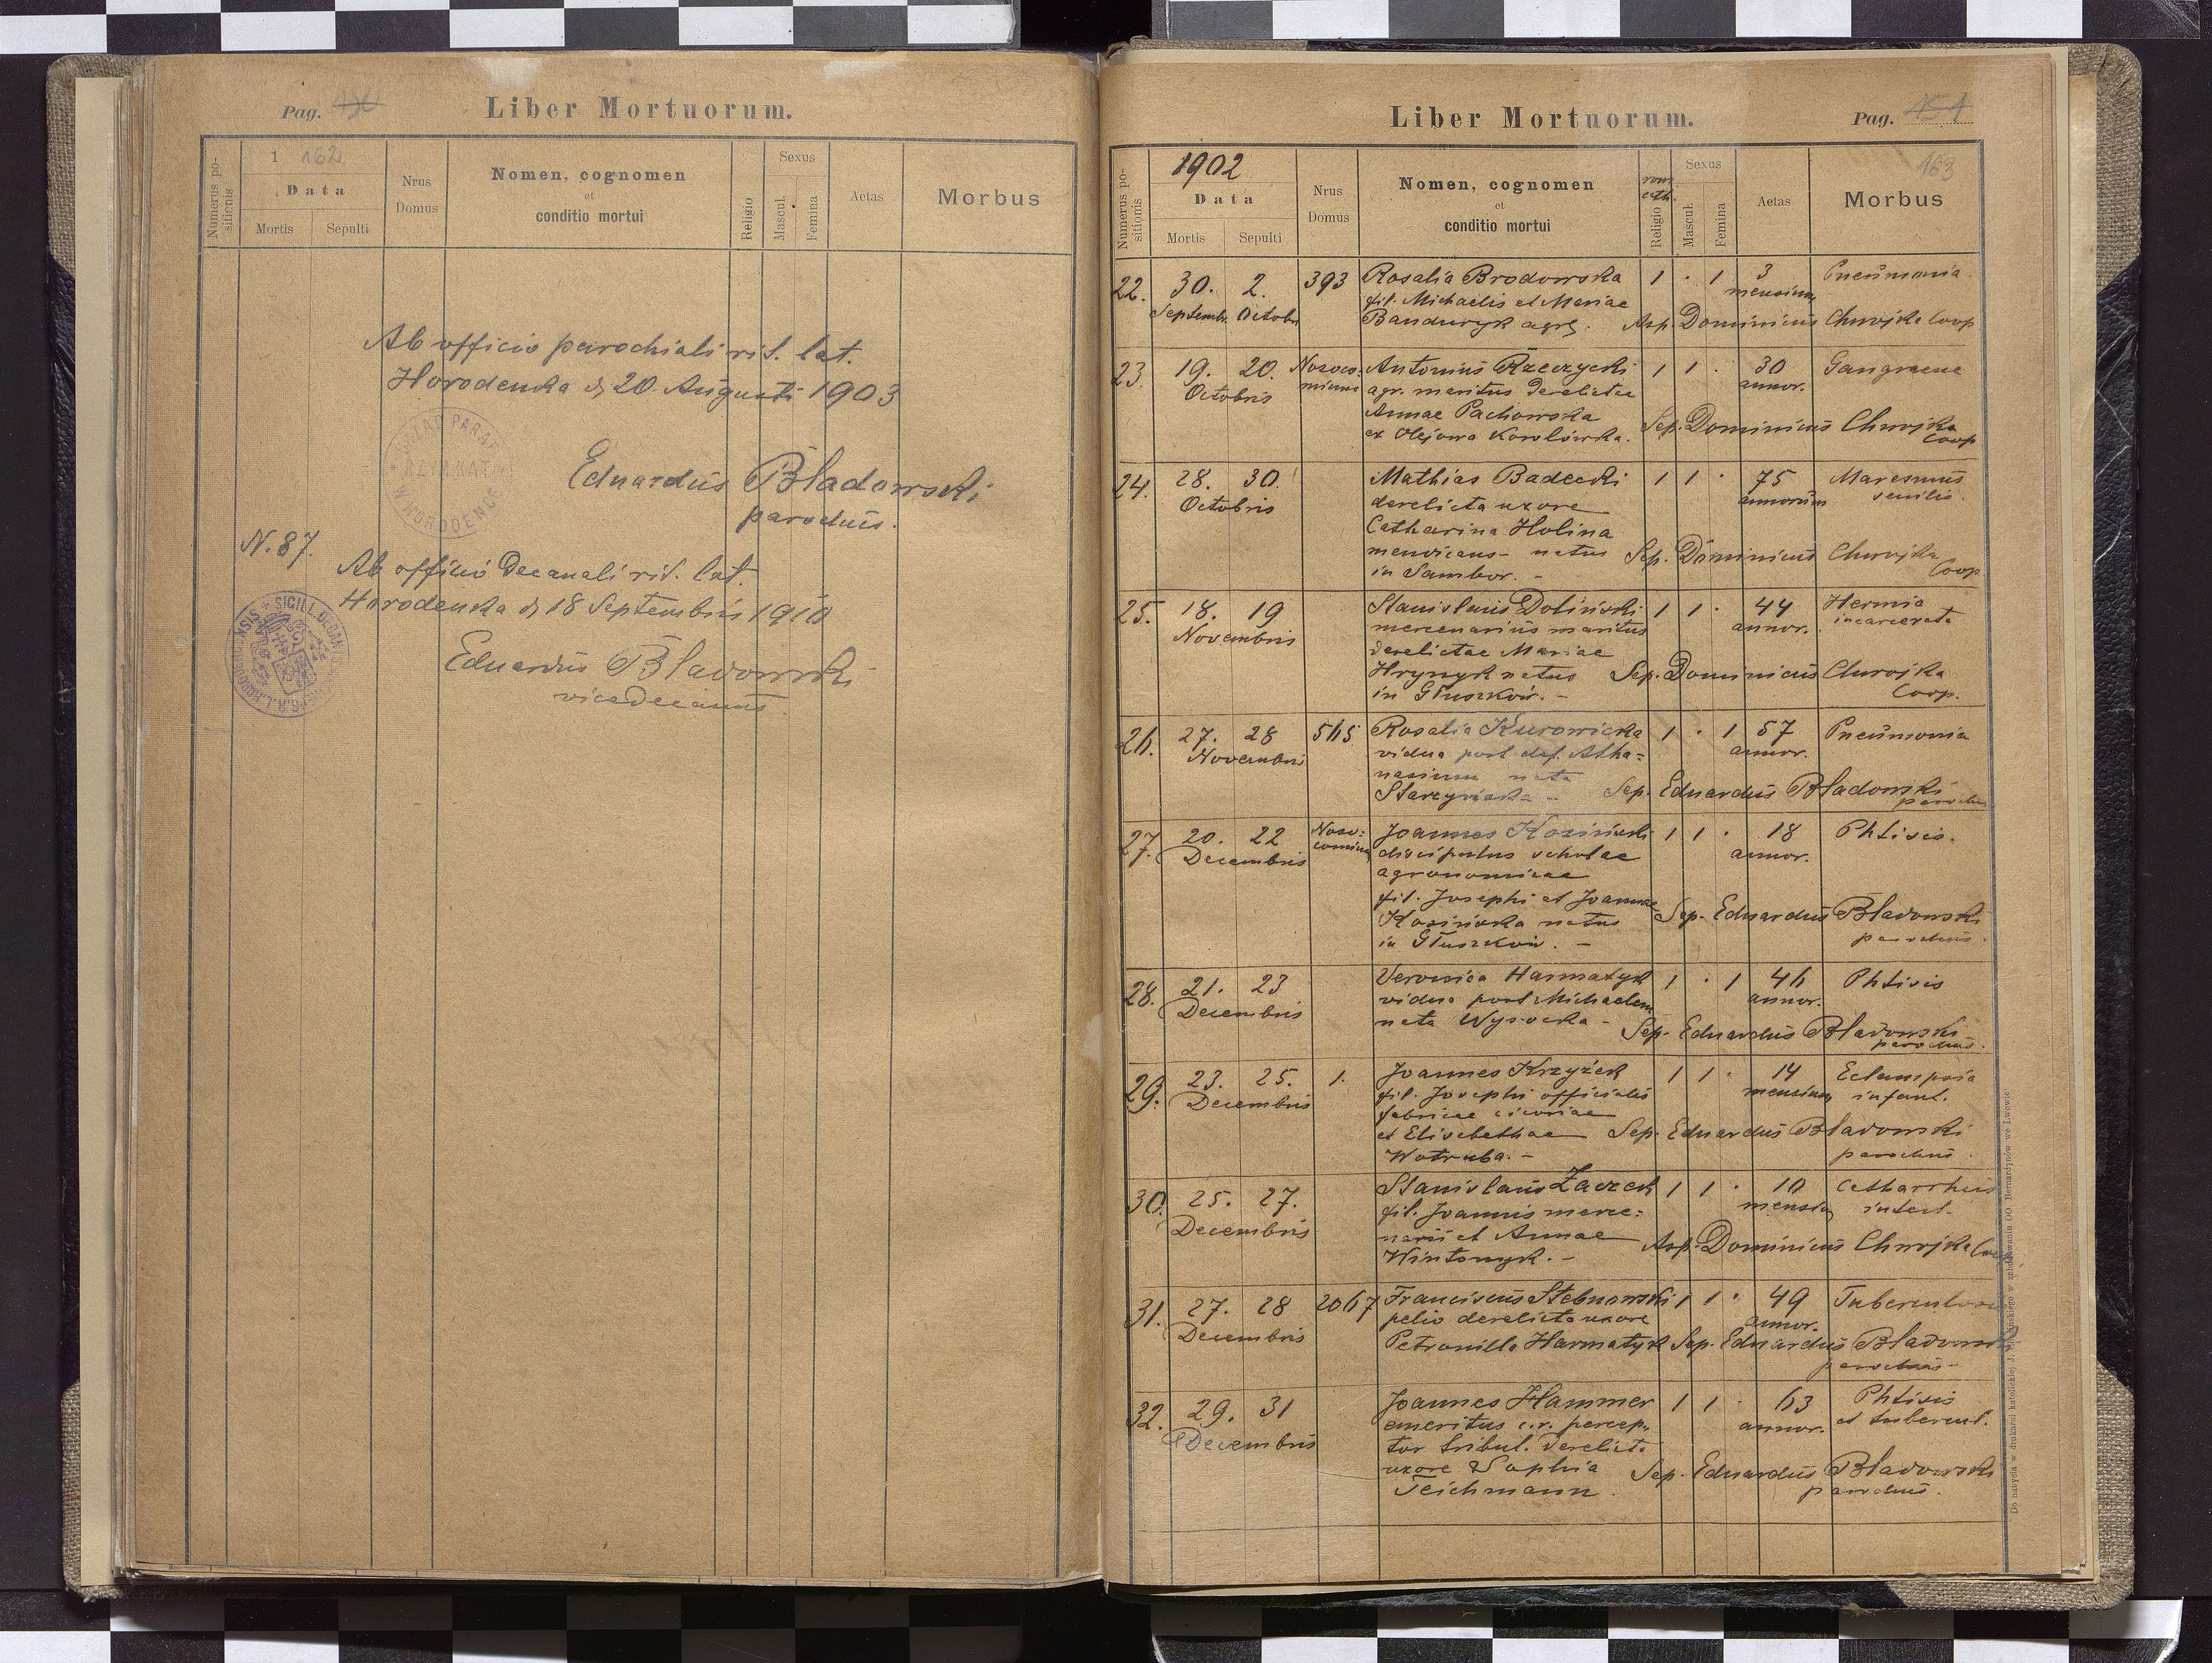 Pag. 150
Liber Mortuorum.
Numerus positionis
1 162
Data
Mortis Sepulti
Nrus Domus
Nomen, cognomen
et
conditio mortui
Religio
Sexus
Mascul. Femina
Aetas
Morbus
Ab officio parochiali rit. lat.
Horodenka d, 20. Augusti 1903
Eduardus Bładowski
parochus.
N. 87.
Ab officio Decanali rit. lat.
Horodenka d, 18 Septembris 1910
Eduardus Bładowski
vicedecanus
Liber Mortuorum.
Pag. 151
163
Numerus positionis
1902
Data
Mortis Sepulti
Nrus Domus
Nomen, cognomen
et
conditio mortui
rom. cath.
Religio
Sexus
Mascul. Femina
Aetas
Morbus
22. 30. 2. 393 Rosalia Brodowska 1 · 1 3 Pneumonia
Septembr. Octobr. fil. Michaelis et Mariae mensium
Banduryk agr. Asp. Dominicus Chwojka Coop
23. 19. 20. Nosocomium Antonius Rzeczycki 1 1 · 30 Gangraena
Octobris agr. maritus derelictae annor.
Annae Pachowska
ex Olejowa Korolówka. Sep. Dominicus Chwojka Coop
24. 28. 30. Mathias Badecki 1 1 · 75 Marasmus
Octobris derelicta uxore annorum senilis
Catharina Holina
mendicans natus Sep. Dominicus Chwojka
in Sambor. - Coop
25. 18. 19 Stanislaus Doliński 1 1 · 44 Hernia
Novembris mercenarius maritus annor. incarcerata
derelictae Mariae
Hrynyk natus Sep. Dominicus Chwojka
in Głuszków. - Coop.
26. 27. 28 565 Rosalia Kurowicka 1 · 1 57 Pneumonia
Novembris vidua post def. Atha= annor.
nasium nata
Starzyńska - Sep. Eduardus Bładowski
parochus
27. 20. 22 Noso=comium Joannes Kosiński 1 1 · 18 Phtisis.
Decembris discipulus scholae annor.
agronomicae
fil. Josephi et Joannae Sep. Eduardus Bładowski
Kosińska natus parochus.
in Głuszków. -
28. 21. 23 Veronica Harmatyk 1 · 1 46 Phtisis
Decembris vidua post Michaelem annor.
nata Wysocka - Sep. Eduardus Bładowski
parochus.
29. 23. 25. 1. Joannes Krzyżek 1 1 · 14 Eclampsia
Decembris fil. Josephi officialis mensium infant.
fabricae cicoriae
et Elisabethae Sep. Eduardus Bładowski
Wotruba. - parochus.
30. 25. 27. Stanislaus Zaczek 1 1 · 10 Catharrhus
Decembris fil. Joannis merce= mensium intest.
narii et Annae Asp. Dominicus Chwojka Coop
Wintonyk. -
31. 27. 28 2067 Franciscus Stebnowski 1 1 · 49 Tuberculosis
Decembris pelio derelicta uxore annor.
Petronilla Harmatyk Sep. Eduardus Bładowski
parochus
32. 29. 31 Joannes Hammer 1 1 · 63 Phtisis
Decembris emeritus c.r. percep= annor. et tubercul.
tor tribut. derelicta
uxore Sophia Sep. Eduardus Bładowski
Teichmann. parochus.